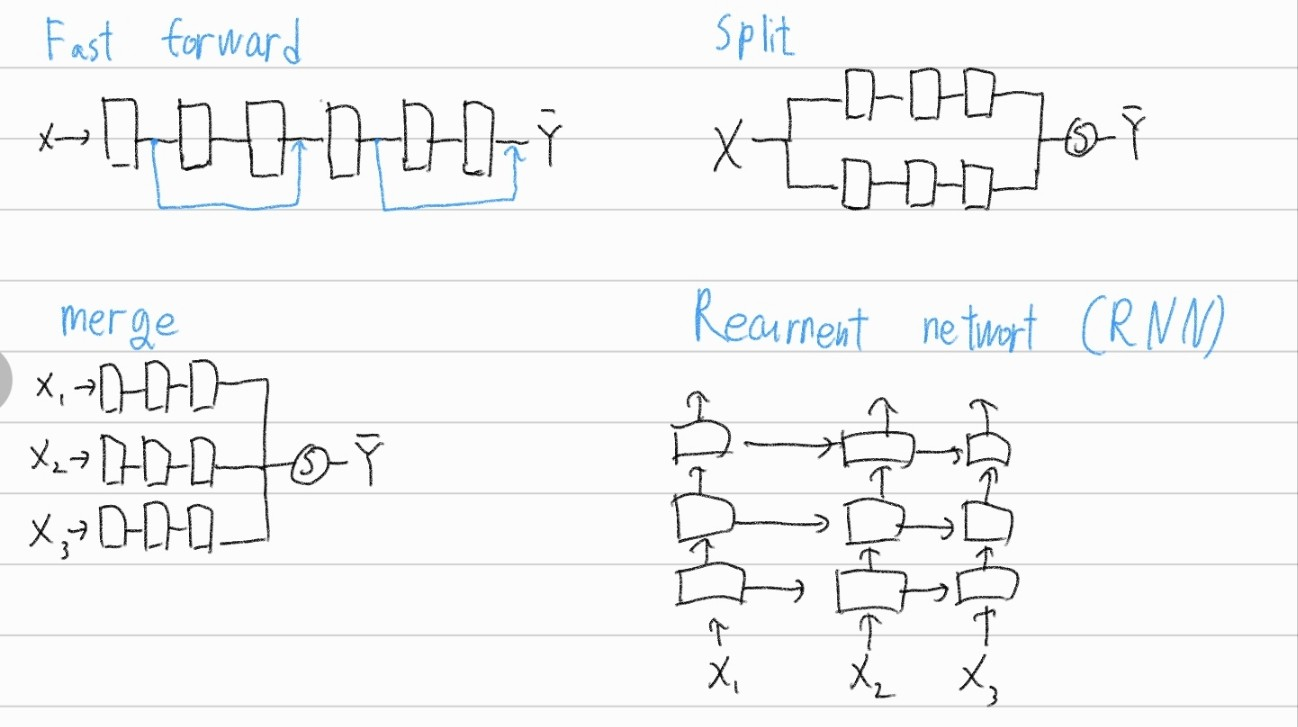 Fast forward
X → Ȳ
Split
X Ⓢ Ȳ
merge
X₁ →
X₂ → Ⓢ Ȳ
X₃ →
Recurrent networt (RNN)
X₁ X₂ X₃